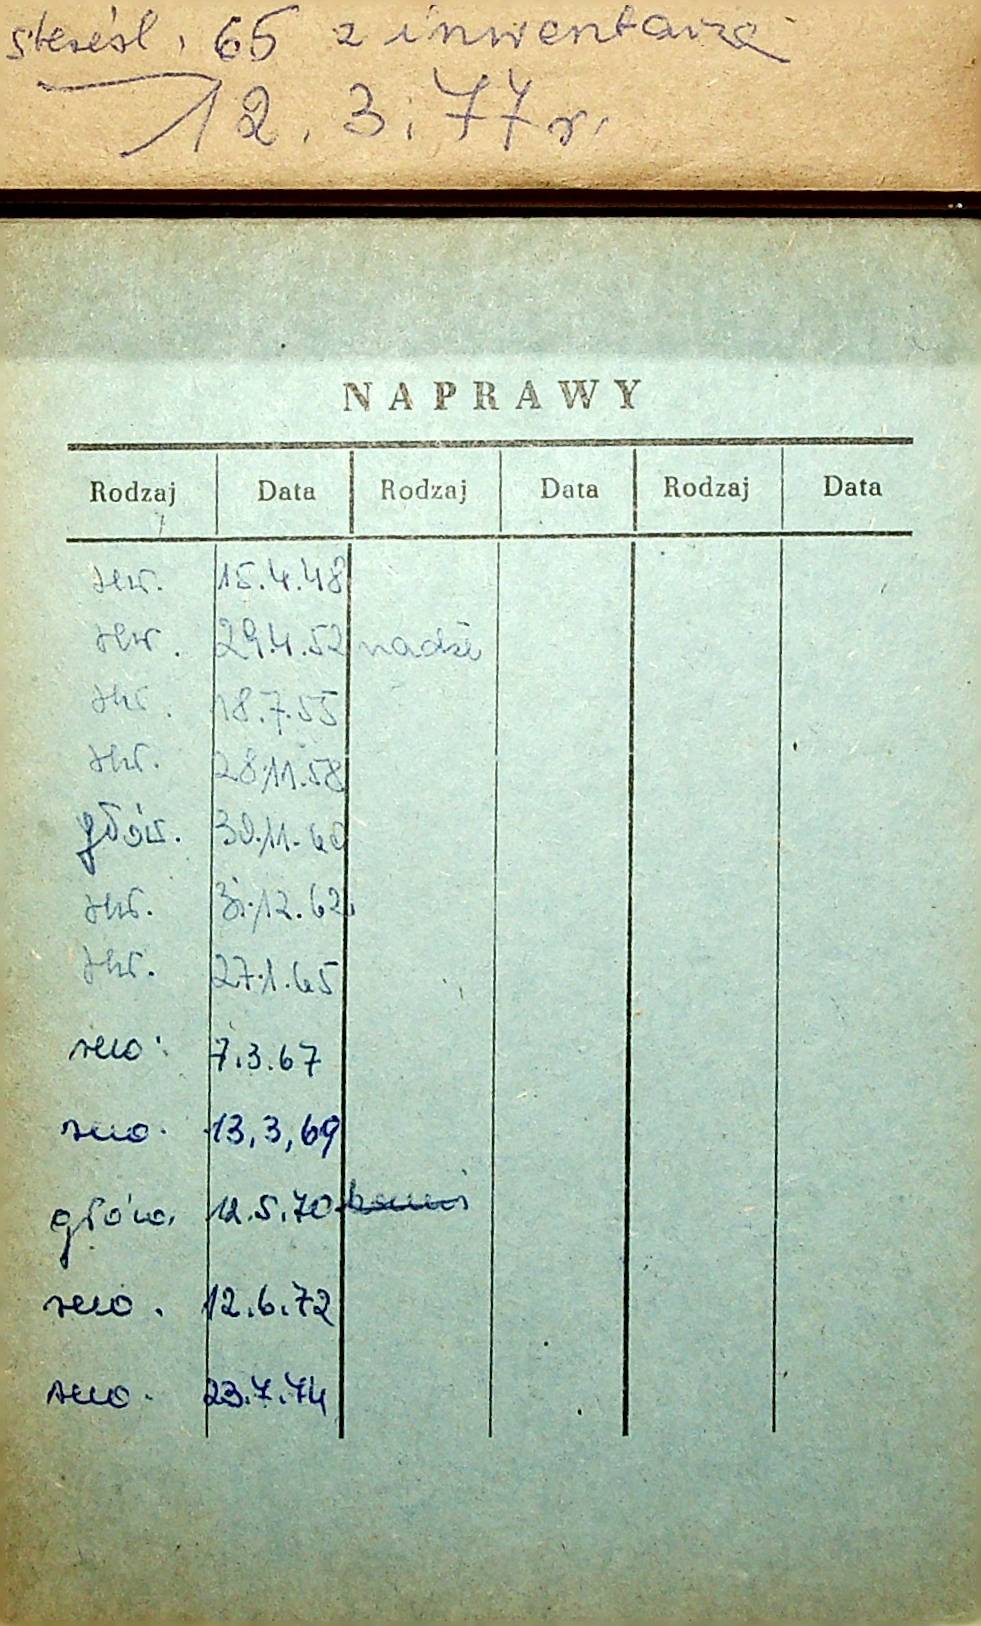 skreśl. 65 z inwentarza
12.3.77 r.
NAPRAWY
Rodzaj Data Rodzaj Data Rodzaj Data
rew. 15.4.48
rew. 29.4.52
rew. 18.7.55
rew. 28.11.58
głów. 30.11.60
rew. 31.12.62.
rew. 27.1.65
rew. 7.3.67
rew. 13,3,69
głów. 12.5.70
rew. 12.6.72
rew. 23.7.74